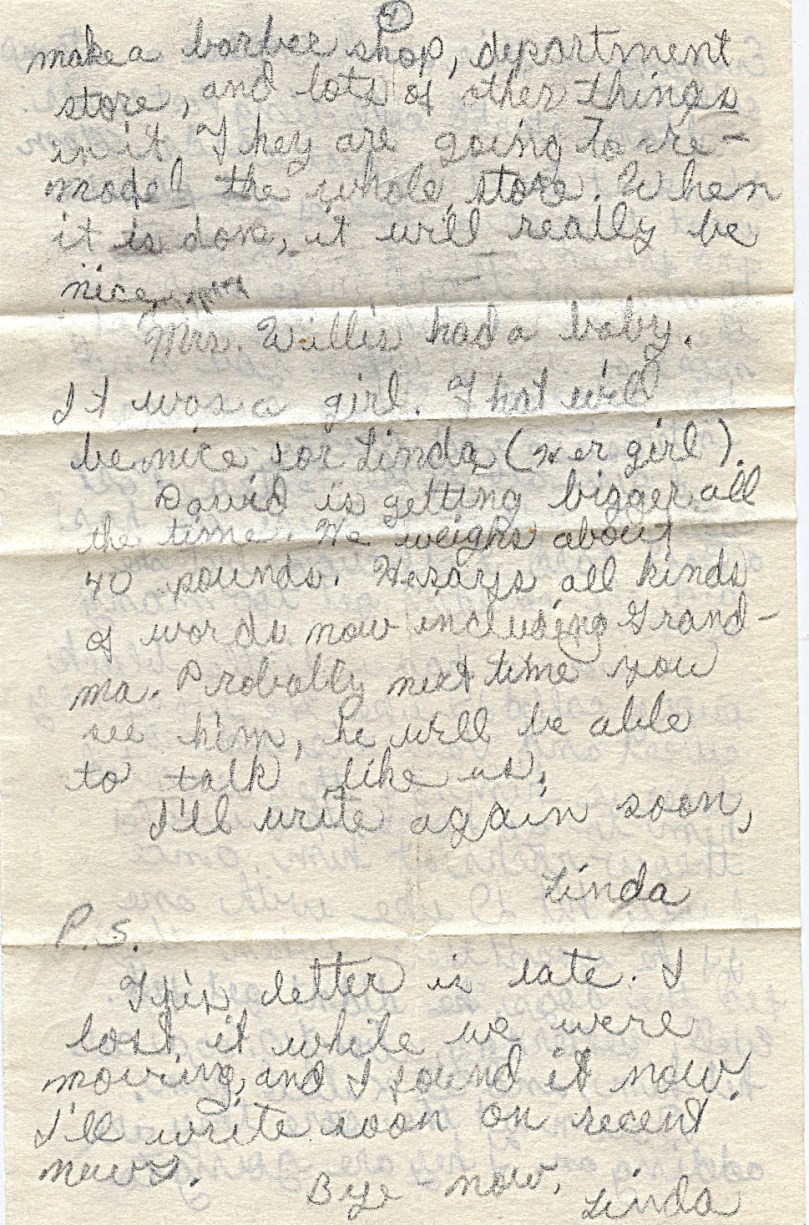 4
make a barber shop, department
store, and lots of other things
in it. They are going to re-
model the whole store. When
it is done, it will really be
nice.
Mrs. Willis had a baby.
It was a girl. That will
be nice for Linda (her girl).
David is getting bigger all
the time. He weighs about
40 pounds. He says all kinds
of words now including Grand-
ma. Probably next time you
see him, he will be able
to talk like us.
I'll write again soon,
Linda
P.S.
This letter is late. I
lost it while we were
moving, and I found it now.
I'll write soon on recent
news.
Bye-now,
Linda